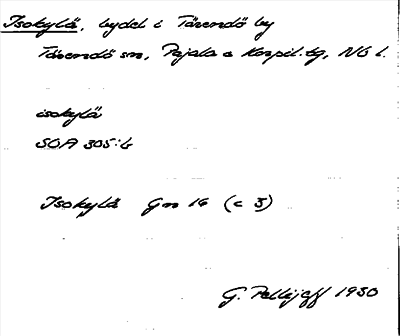 Isokylä, bydel i Tärendö by
Tärendö sn, Pajala o Korpil. tg, Nb l.
isokylä
SOA 305:b
Isokylä Gm 16 (c 3)
G. Pellijeff 1950